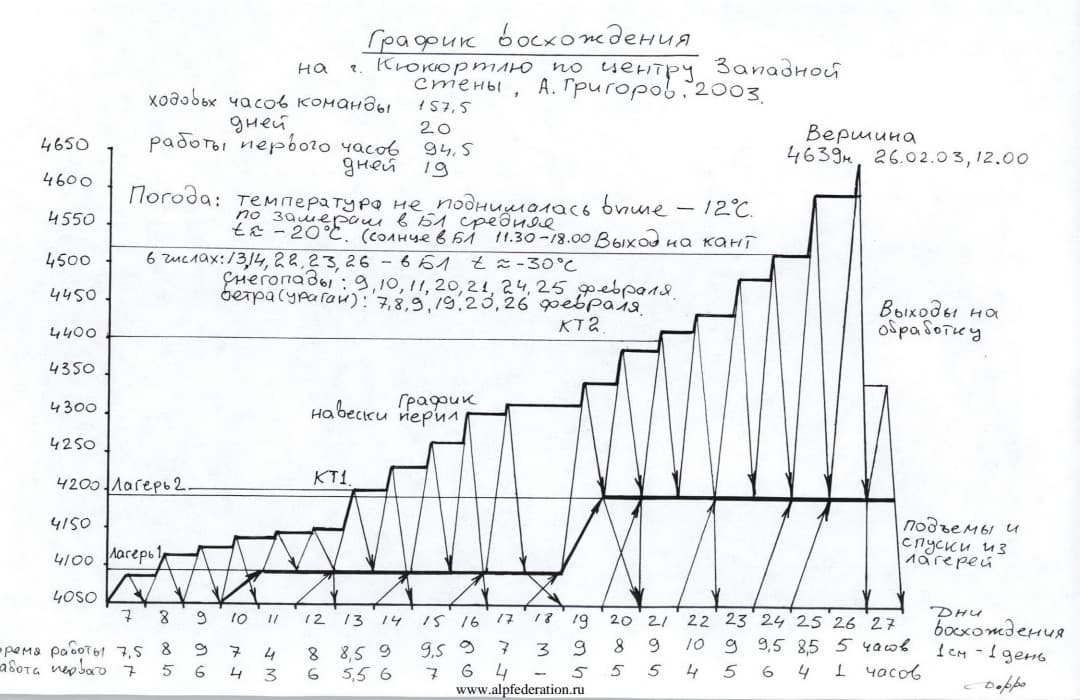 График восхождения
на г. Кюкюртлю по центру Западной
стены, А. Григоров. 2003.
ходовых часов команды 157,5
дней 20
работы первого часов 94,5
дней 19
Вершина
4639м 26.02.03, 12.00
Погода: температура не поднималась выше – 12°С.
по замерам в БЛ средняя
t ≈ – 20°С. (солнце в БЛ 11.30–18.00 Выход на кант
в числах: 13,14, 22, 23, 26 – в БЛ t ≈ -30°С
Снегопады: 9,10,11, 20, 21, 24, 25 февраля.
ветра (ураган): 7,8,9,19,20,26 февраля.
КТ2.
Выходы на
обработку
График
навески перил
КТ1.
Лагерь2
Лагерь1
подъемы и
спуски из
лагерей
4650
4600
4550
4500
4450
4400
4350
4300
4250
4200
4150
4100
4050
7 8 9 10 11 12 13 14 15 16 17 18 19 20 21 22 23 24 25 26 27
Дни
восхождения
1см – 1 день
ремя работы 7,5 8 9 7 4 8 8,5 9 9,5 9 7 3 9 8 9 10 9 9,5 8,5 5 часов
абота первого 7 5 6 4 3 6 5,5 6 7 6 4 – 5 5 5 4 5 6 4 1 часов
www.alpfederation.ru